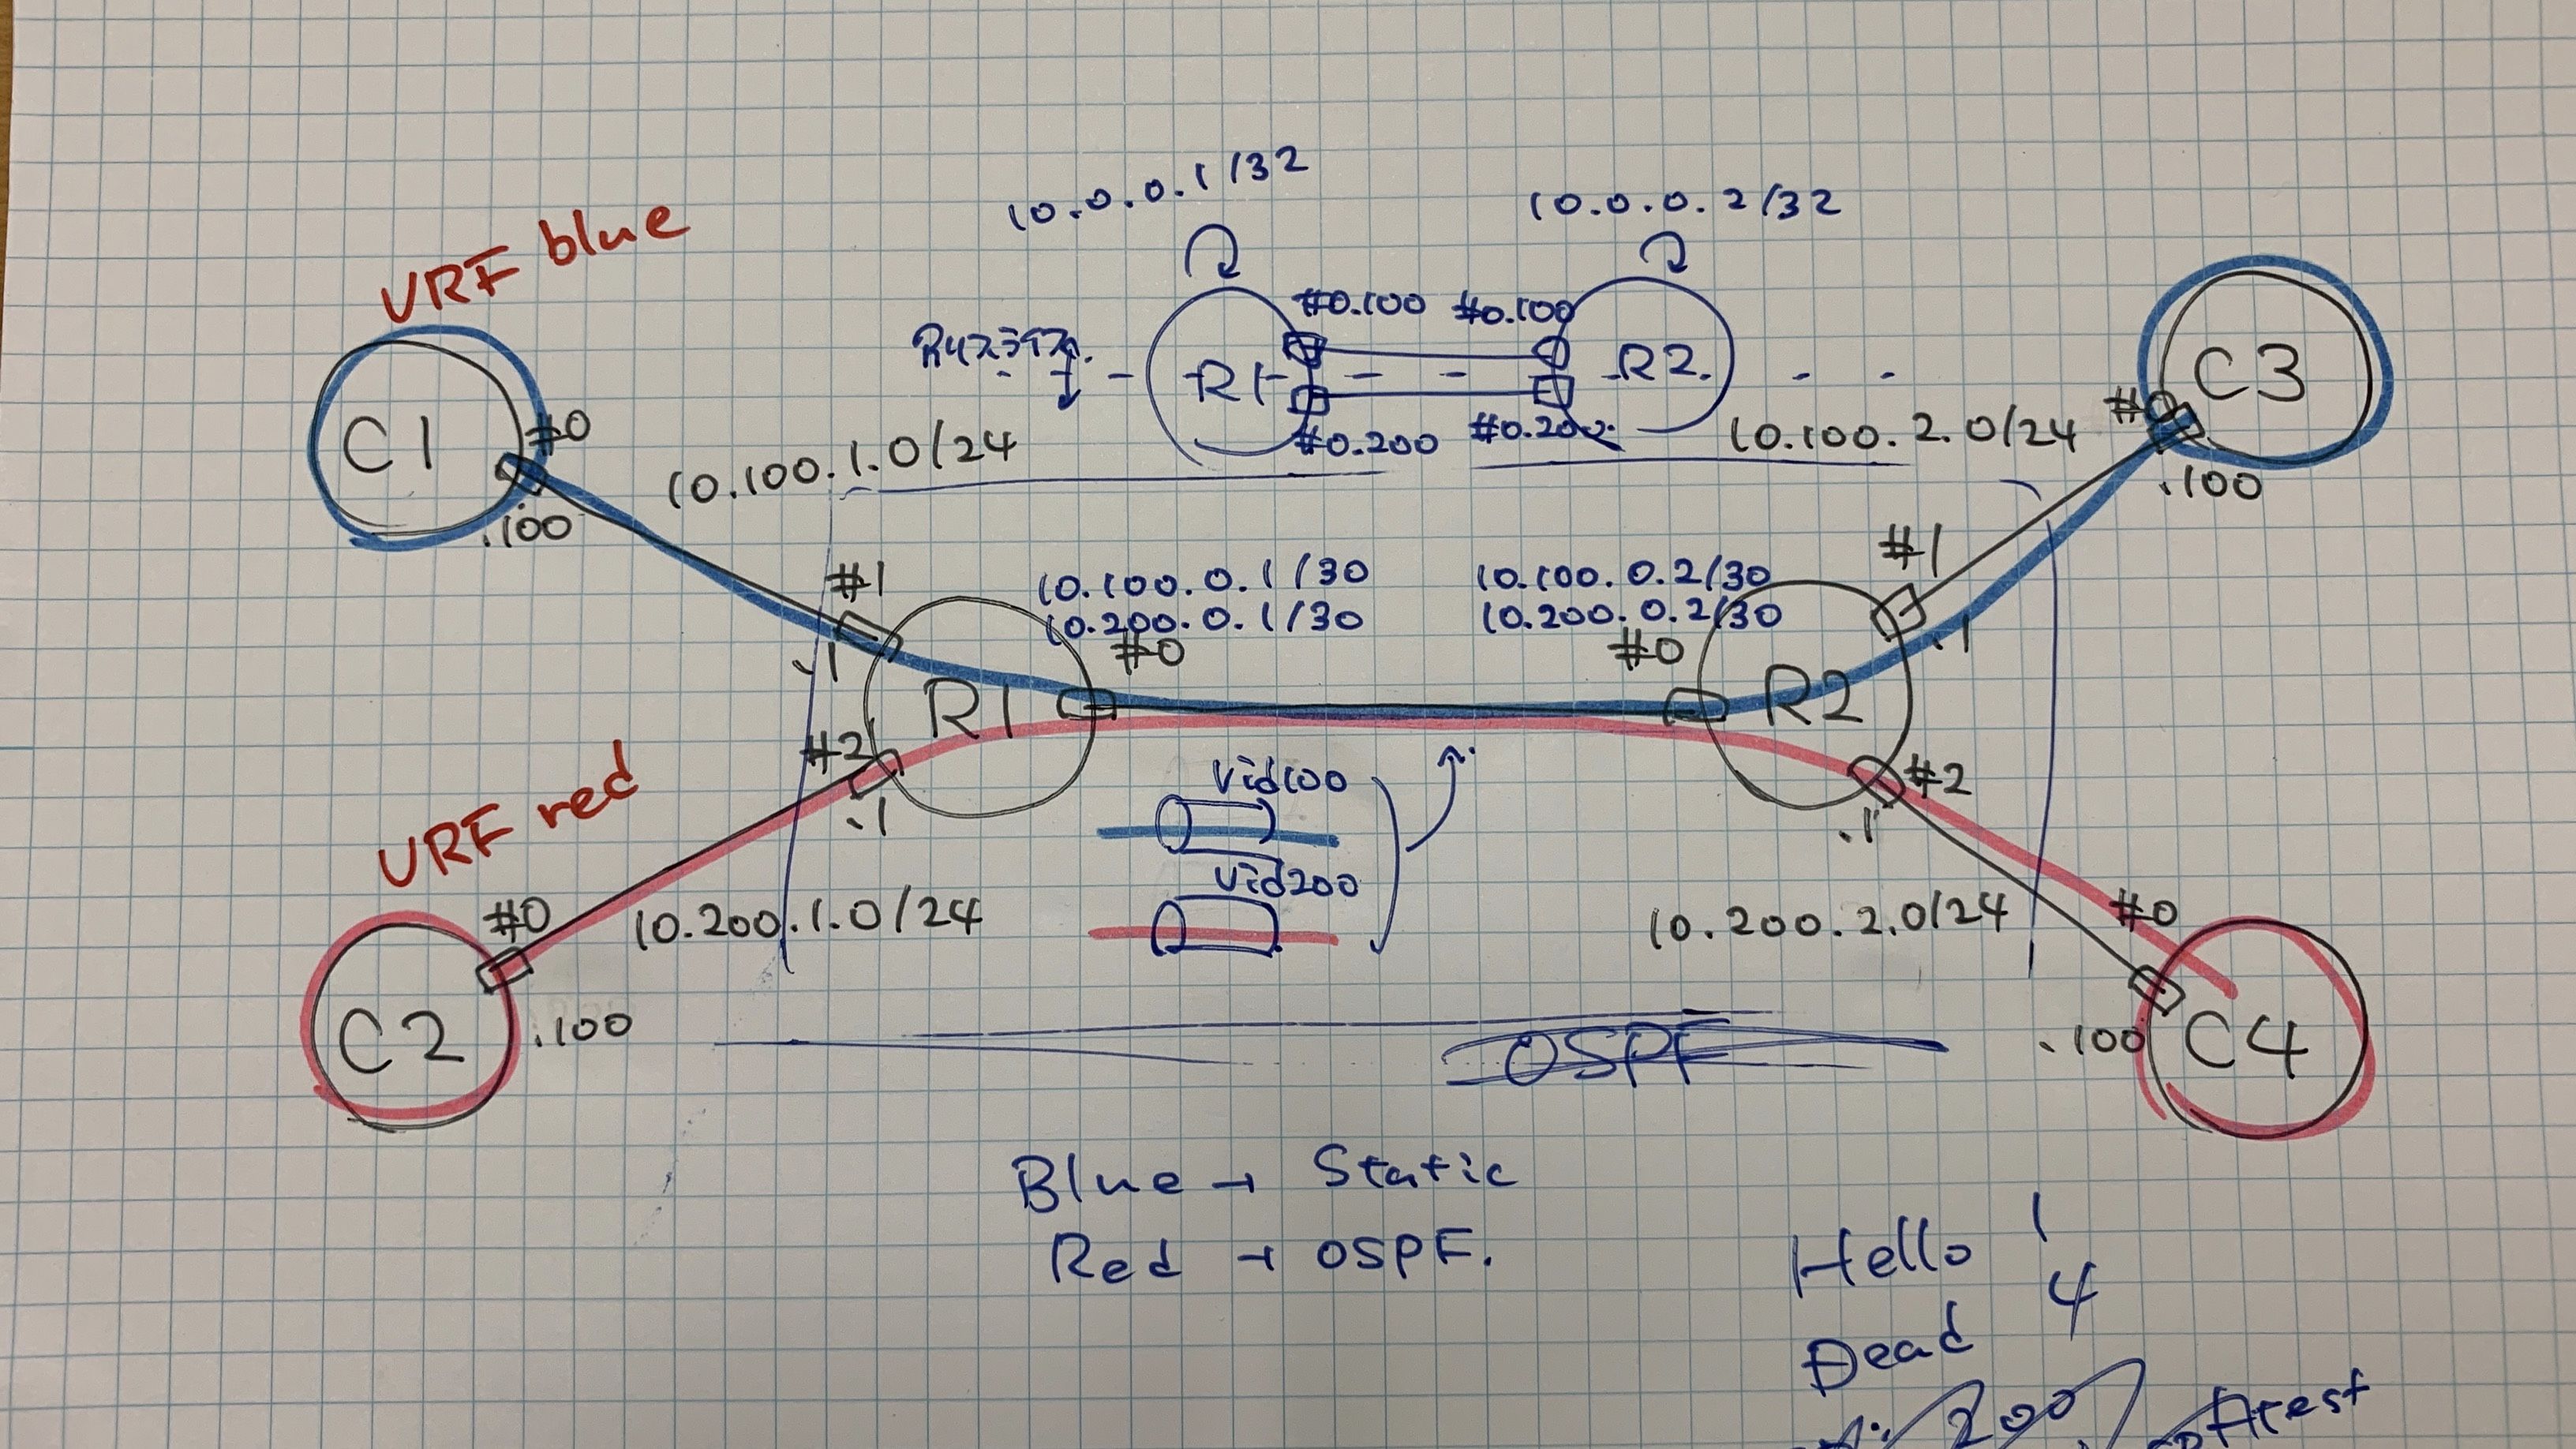 10.0.0.1/32
10.0.0.2/32
VRF blue
#0.100
#0.100
R1
R2.
#0.200
#0.200
C1
#0
.100
10.100.1.0/24
10.100.2.0/24
C3
#0
.100
#1
.1
10.100.0.1/30
10.200.0.1/30
#0
10.100.0.2/30
10.200.0.2/30
#0
#1
.1
R1
R2
#2
.1
#2
.1
Vid100
Vid200
VRF red
#0
10.200.1.0/24
10.200.2.0/24
#0
C2
.100
.100
C4
OSPF
Blue → Static
Red → OSPF.
Hello 1
Dead 4
200